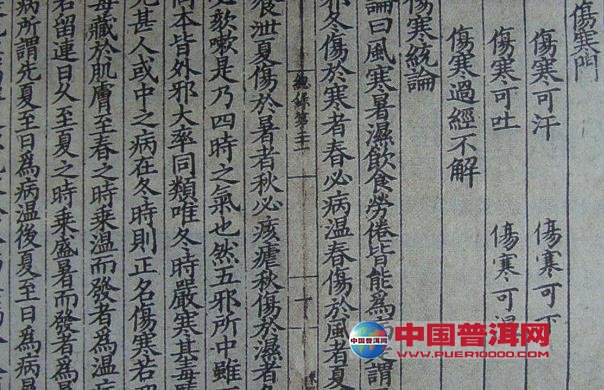 傷寒門
傷寒可汗　傷寒可
傷寒可吐　傷寒可
傷寒過經不解
傷寒統論
論曰風寒暑濕飲食勞倦皆能為 謂
邪冬傷於寒者春必病溫春傷於風者夏
總錄 十
飧泄夏傷於暑者秋必痎瘧秋傷於濕者
必欬嗽是乃四時之氣也然五邪所中雖
同本皆外邪大率同類唯冬時嚴寒其毒
尤甚人或中之病在冬時則正名傷寒若
毒藏於肌膚至春之時乘溫而發者為溫
若留連日久至夏之時乘盛暑而發者為
病所謂先夏至日為病溫後夏至日為病
中国普洱网
中国普洱网
WWW.PUER10000.COM